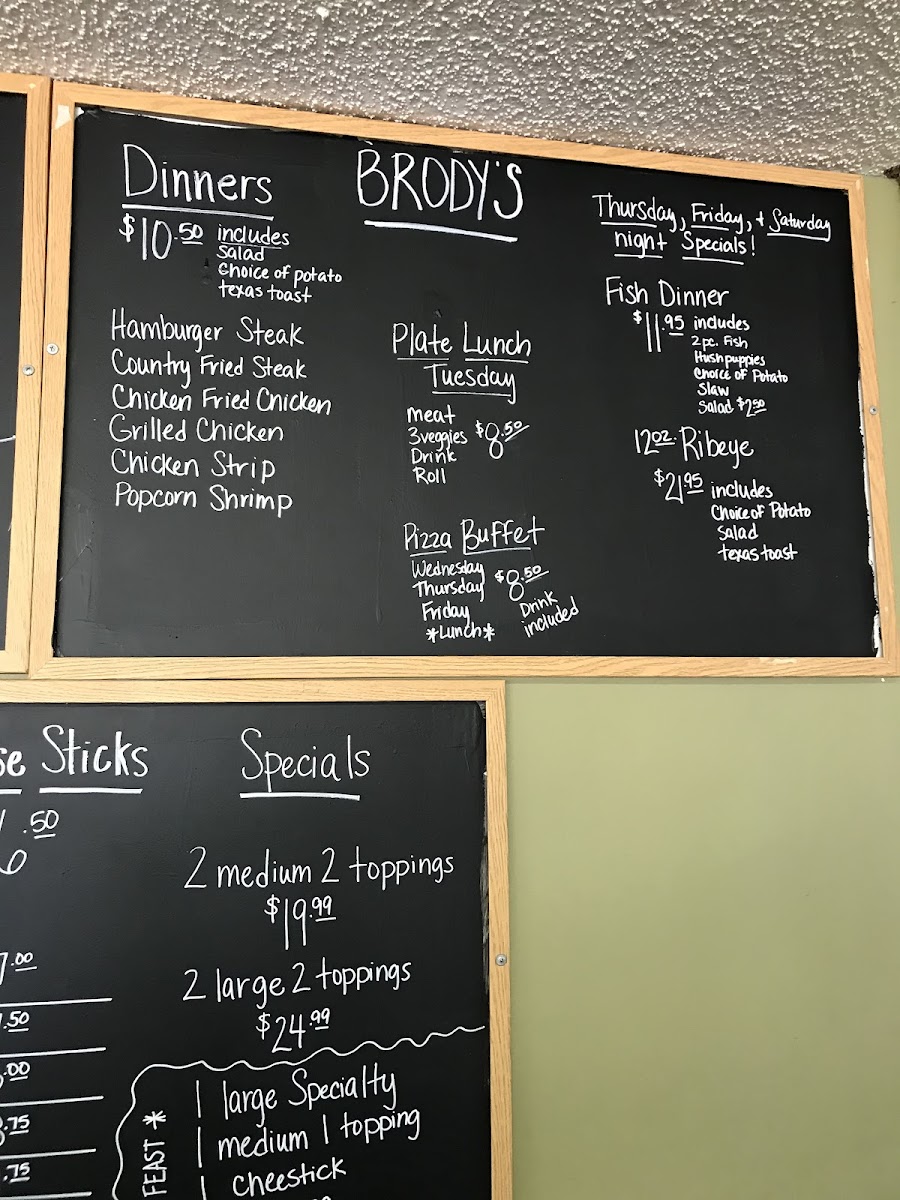 BRODY'S
Dinners
$10.50 includes
Salad
Choice of potato
texas toast
Hamburger Steak
Country Fried Steak
Chicken Fried Chicken
Grilled Chicken
Chicken Strip
Popcorn Shrimp
Plate Lunch
Tuesday
meat
3 veggies $8.50
Drink
Roll
Pizza Buffet
Wednesday
Thursday $8.50
Friday Drink
*Lunch* included
Thursday, Friday, + Saturday
night Specials!
Fish Dinner
$11.95 includes
2 pc. Fish
Hushpuppies
Choice of Potato
Slaw
Salad $2.50
12oz Ribeye
$21.95 includes
Choice of Potato
Salad
texas toast
se Sticks
.50
7.00
.50
.00
.75
.75
Specials
2 medium 2 toppings
$19.99
2 large 2 toppings
$24.99
FEAST *
1 large Specialty
1 medium 1 topping
1 cheestick